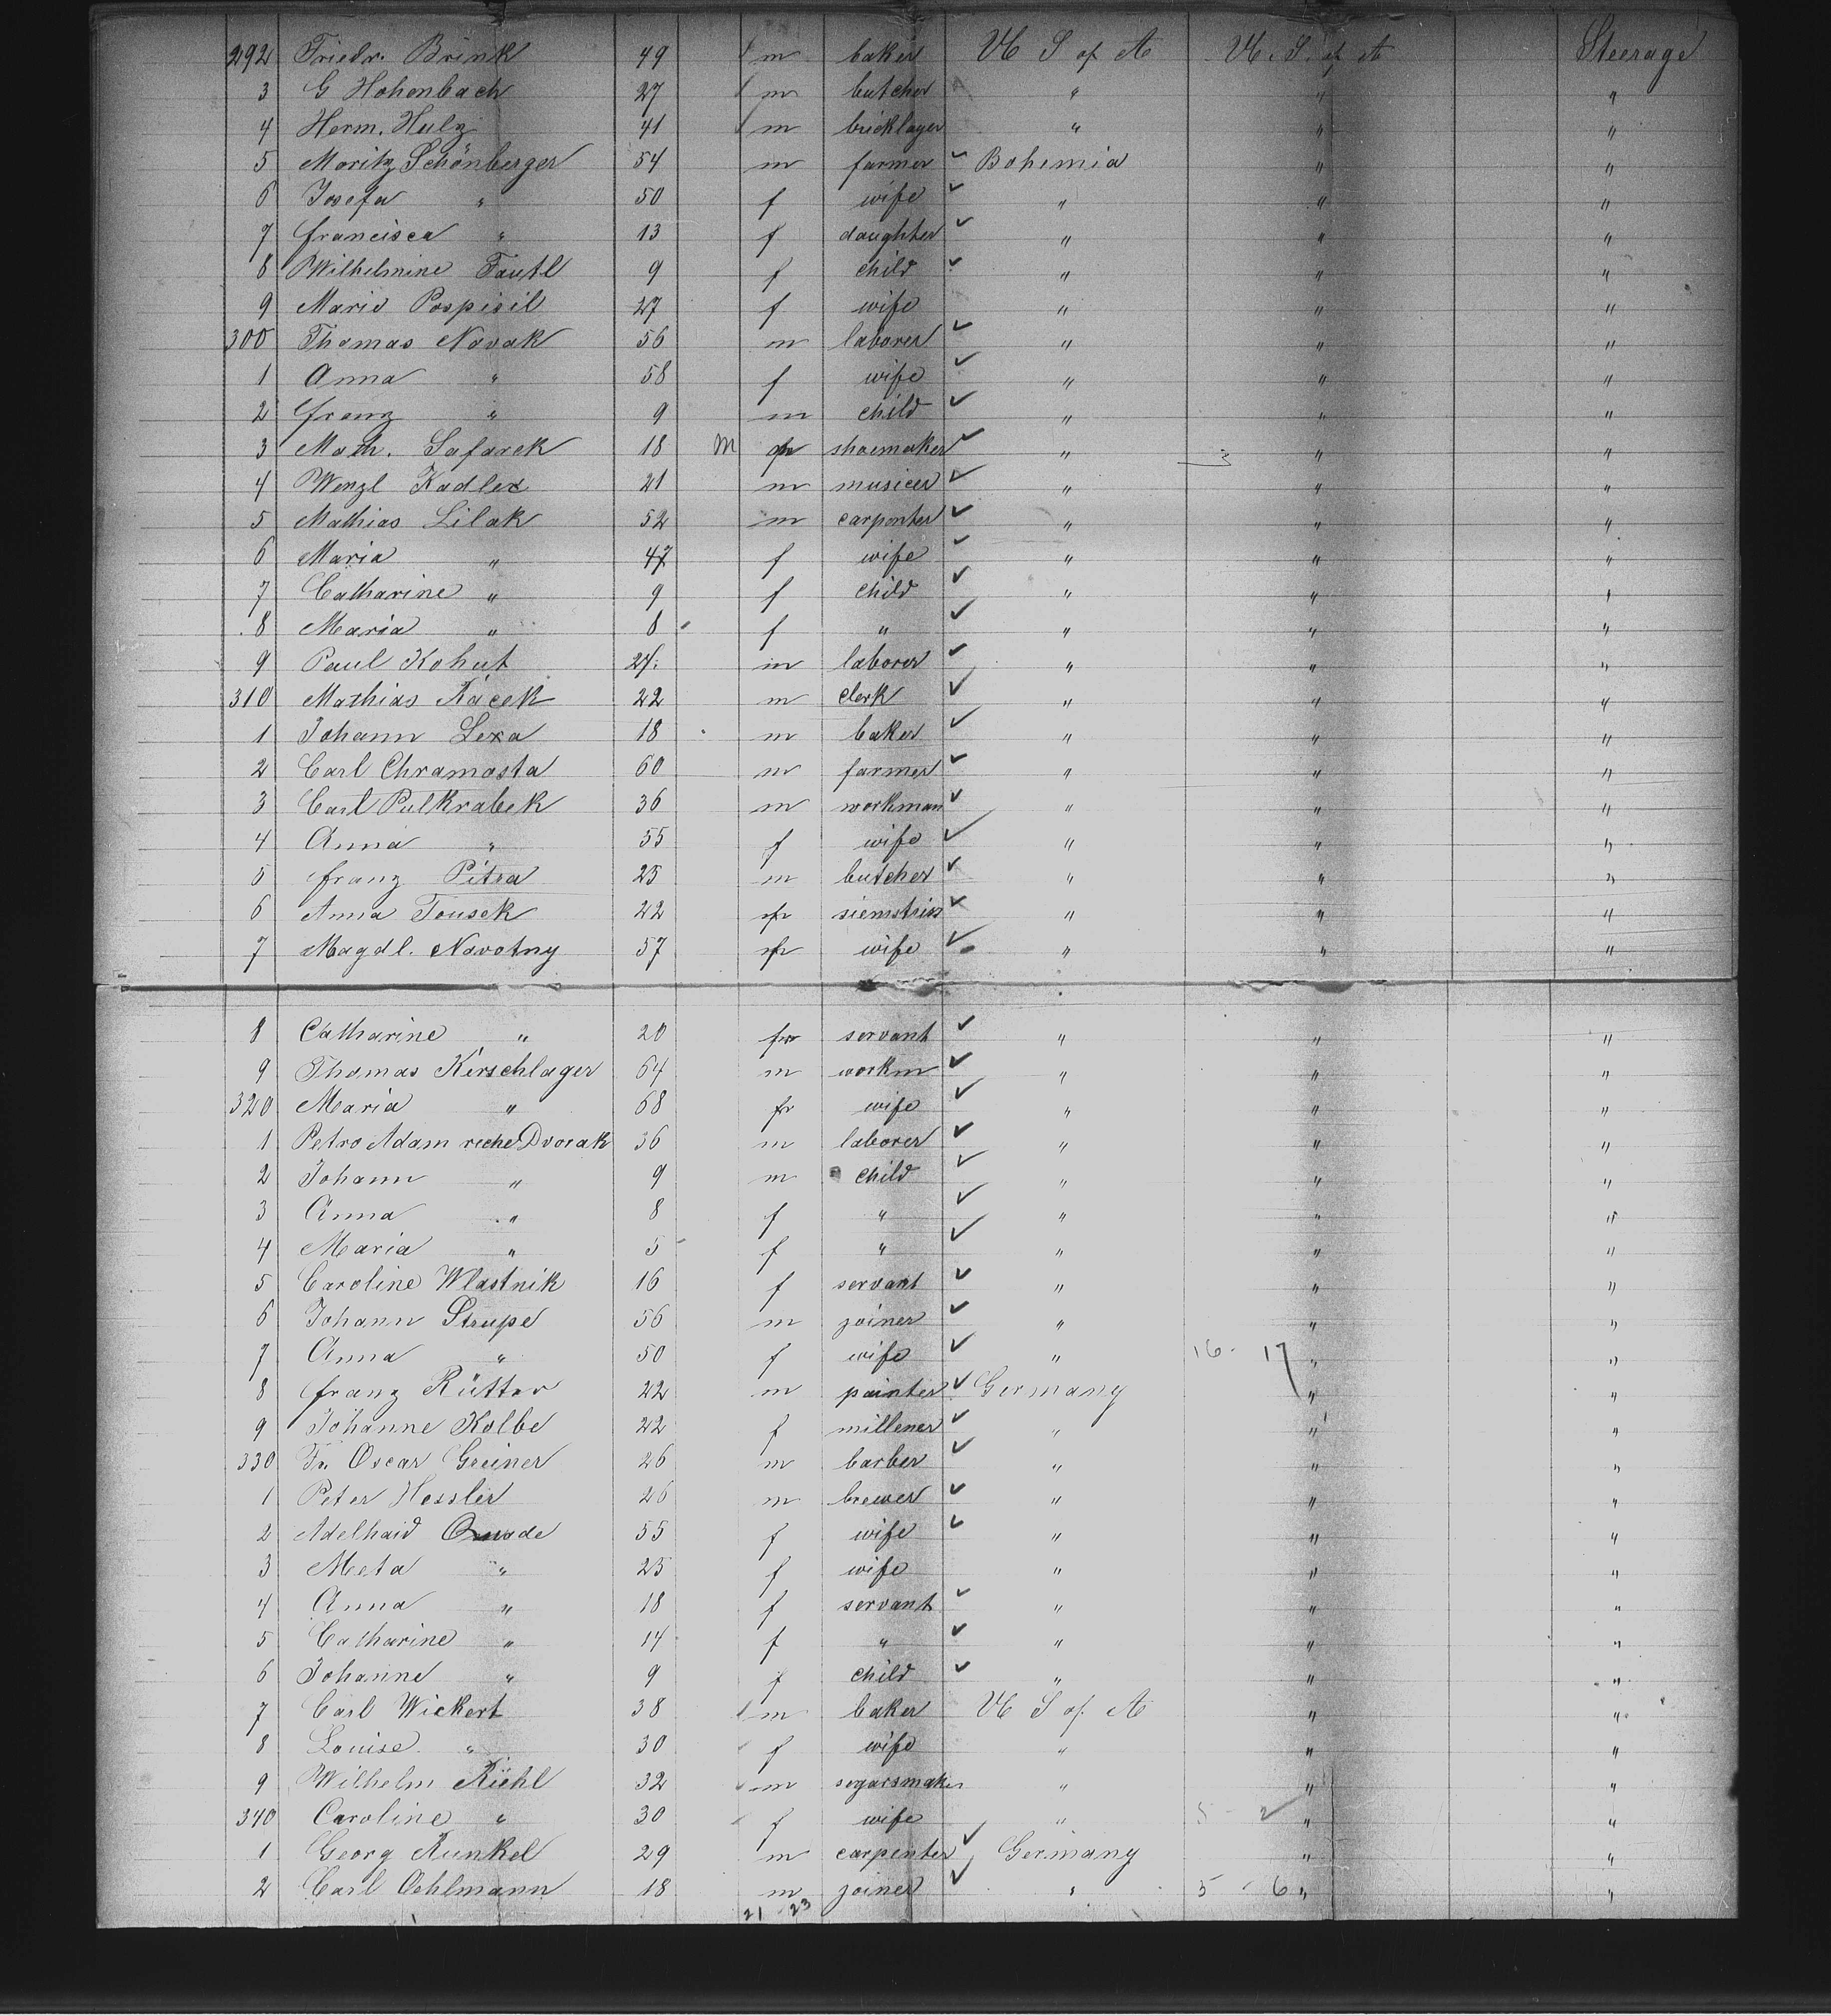 292 Friedr. Brink 49 m baker U S of A U. S. of A Steerage
3 G Hohenbach 27 m butcher " " "
4 Herm. Hulz 41 m bricklayer " " "
5 Moritz Schönberger 54 m farmer Bohemia " "
6 Josefa " 50 f wife " " "
7 francisca " 13 f daughter " " "
8 Wilhelmine Tautl 9 f child " " "
9 Marie Pospisil 27 f wife " " "
300 Thomas Novak 56 m laborer " " "
1 Anna " 58 f wife " " "
2 franz " 9 m child " " "
3 Math. Safarek 18 M shoemaker " " "
4 Wenzl Kadlec 21 m musicer " " "
5 Mathias Lilak 52 m carpenter " " "
6 Maria " 47 f wife " " "
7 Catharine " 9 f child " " "
8 Maria " 8 f " " " "
9 Paul Kohut 24 m laborer " " "
310 Mathias Kacek 22 m clerk " " "
1 Johann Lexa 18 m baker " " "
2 Carl Chramosta 60 m farmer " " "
3 Carl Pulkrabek 36 m workman " " "
4 Anna " 55 f wife " " "
5 franz Pitra 25 m butcher " " "
6 Anna Tousek 22 siemstriss " " "
7 Magdl. Novotny 57 wife " " "
8 Catharine " 20 servant " " "
9 Thomas Kerschlager 64 m workm " " "
320 Maria " 68 fr wife " " "
1 Petro Adam reche Dvorak 36 m laborer " " "
2 Johann " 9 m child " " "
3 Anna " 8 f " " " "
4 Maria " 5 f " " " "
5 Caroline Wlastnik 16 f servant " " "
6 Johann Strupe 56 m joiner " " "
7 Anna " 50 f wife " 16 - 17 " "
8 franz Rütter 22 m painter Germany " "
9 Johanne Kolbe 22 f millener " " "
330 Fr. Oscar Greiner 26 m barber " " "
1 Peter Hessler 26 m brewer " " "
2 Adelhaid 55 f wife " " "
3 Meta " 25 f wife " " "
4 Anna " 18 f servant " " "
5 Catharine " 14 f " " " "
6 Johanne " 9 f child " " "
7 Carl Wickert 38 m baker U S of A " "
8 Louise " 30 f wife " " "
9 Wilhelm Riehl 32 m segarsmaker " " "
340 Caroline " 30 f wife " 5 - 2 " "
1 Georg Runkel 29 m carpenter Germany " "
2 Carl Oehlmann 18 m joiner " 5 - 6 " "
21 - 23